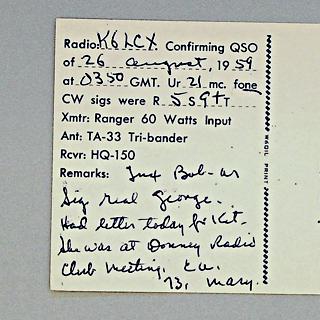 Radio: K6LCX Confirming QSO
of 26 August, 1959
at 0350 GMT. Ur 21 mc. fone
CW sigs were R 5 S 9+ T
Xmtr: Ranger 60 Watts Input
Ant: TA-33 Tri-bander
Rcvr: HQ-150
Remarks: Tnx Bob - ur
Sig real George.
Had letter today fr Kit.
She was at Downey Radio
Club meeting. Cu.
73, Mary.
W6DIL PRINT